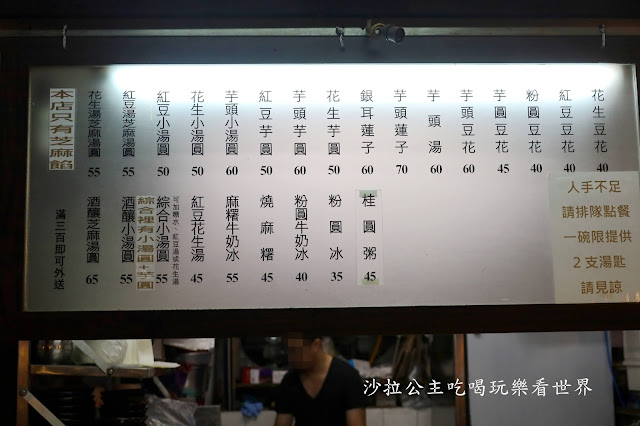 花生豆花 40
紅豆豆花 40
粉圓豆花 40
芋圓豆花 45
芋頭豆花 60
芋頭湯 60
芋頭蓮子 70
銀耳蓮子 60
花生芋圓 50
芋頭芋圓 60
紅豆芋圓 50
芋頭小湯圓 60
花生小湯圓 50
紅豆小湯圓 50
紅豆湯芝麻湯圓 55
花生湯芝麻湯圓 55
本店只有芝麻餡
桂圓粥 45
粉圓冰 35
粉圓牛奶冰 40
燒麻糬 45
麻糬牛奶冰 55
紅豆花生湯 45
可加糖水、紅豆湯或花生湯
綜合小湯圓 55
綜合裡有小湯圓+芋圓
酒釀小湯圓 55
酒釀芝麻湯圓 65
滿三百即可外送
人手不足
請排隊點餐
一碗限提供
2支湯匙
請見諒
沙拉公主吃喝玩樂看世界